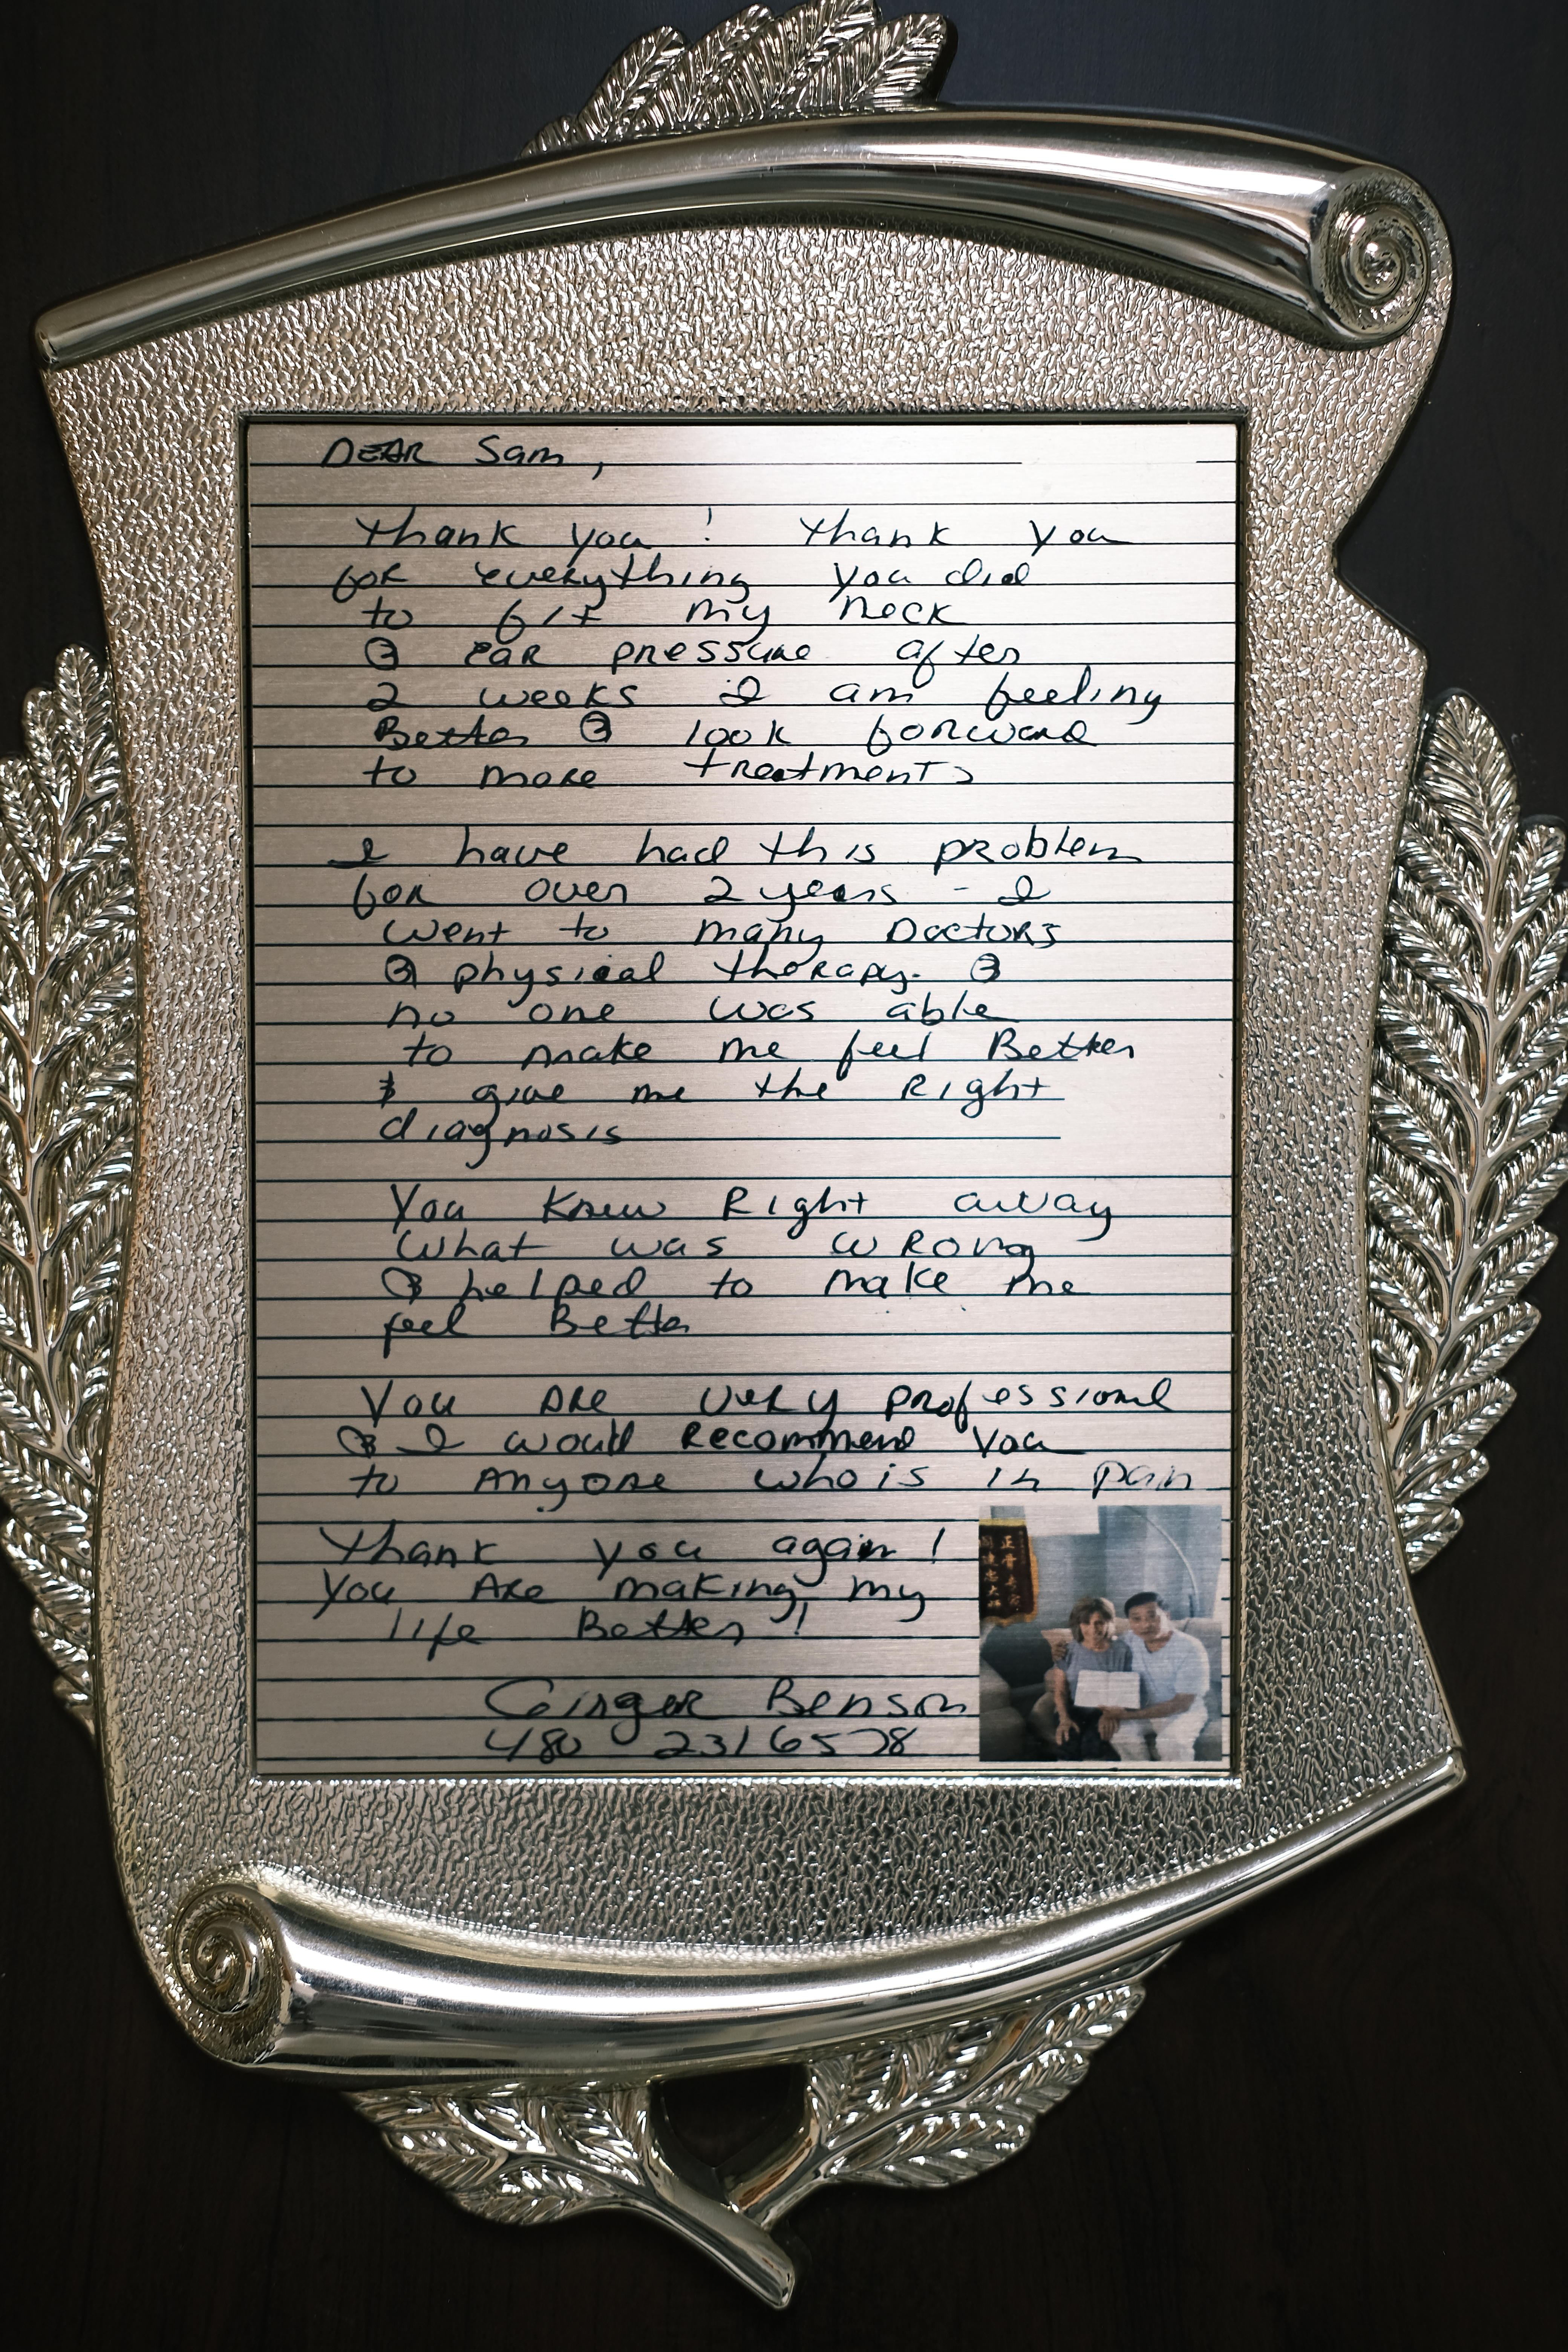 DEAR Sam,
Thank you! Thank you
for everything you did
to fix my neck
& ear pressure after
2 weeks I am feeling
Better & look forward
to more treatments
I have had this problem
for over 2 years - I
went to many Doctors
& physical therapy. &
no one was able
to make me feel Better
& give me the Right
diagnosis
You knew Right away
what was wrong
& helped to make me
feel Better
You are very professional
& I would Recommend You
to Anyone who is in pain
Thank you again!
You Are making my
life Better!
Ginger Benson
480 231 6578
正骨